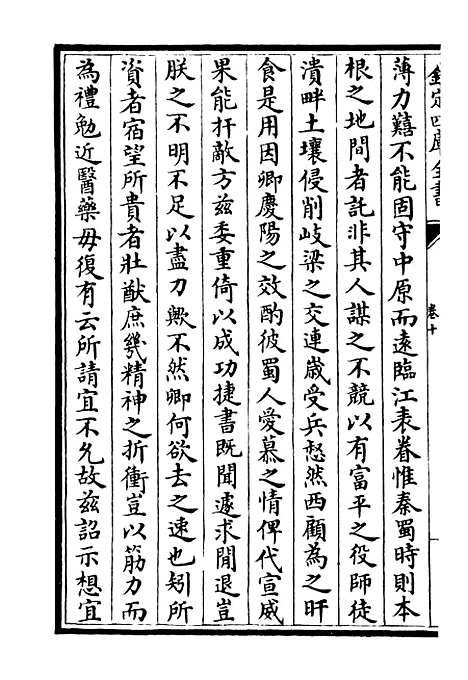 欽定四庫全書
卷十
薄力囏不能固守中原而遠臨江表眷惟秦蜀時則本
根之地間者託非其人謀之不競以有富平之役師徒
潰畔土壤侵削岐梁之交連嵗受兵愁然西顧為之旰
食是用因卿慶陽之效酌彼蜀人愛慕之情俾代宣威
果能扞敵方兹委重倚以成功捷書既聞遽求閒退豈
朕之不明不足以盡刀歟不然卿何欲去之速也矧所
資者宿望所貴者壯猷庶幾精神之折衝豈以筋力而
為禮勉近醫藥毋復有云所請宜不允故兹詔示想宜